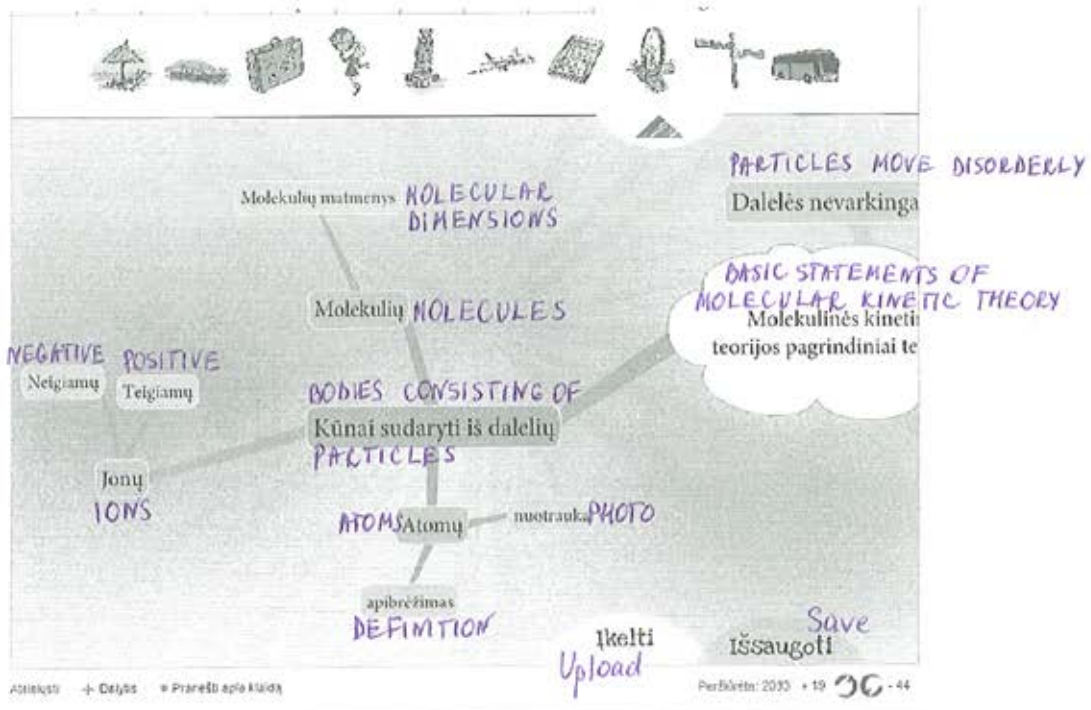 PARTICLES MOVE DISORDERLY
Dalelės nevarkinga
Molekulių matmenys MOLECULAR
DIMENSIONS
BASIC STATEMENTS OF
MOLECULAR KINETIC THEORY
Molekulinės kineti
teorijos pagrindiniai te
Molekulių MOLECULES
NEGATIVE POSITIVE
Neigiamų Teigiamų
BODIES CONSISTING OF
Kūnai sudaryti iš dalelių
PARTICLES
Jonų
IONS
ATOMS Atomų
nuotrauka PHOTO
apibrėžimas
DEFINITION
Įkelti
Upload
Save
Išsaugoti
Atsisiųsti + Dalytis Pranešti apie klaidą
Peržiūrėta: 2093 + 19 - 44